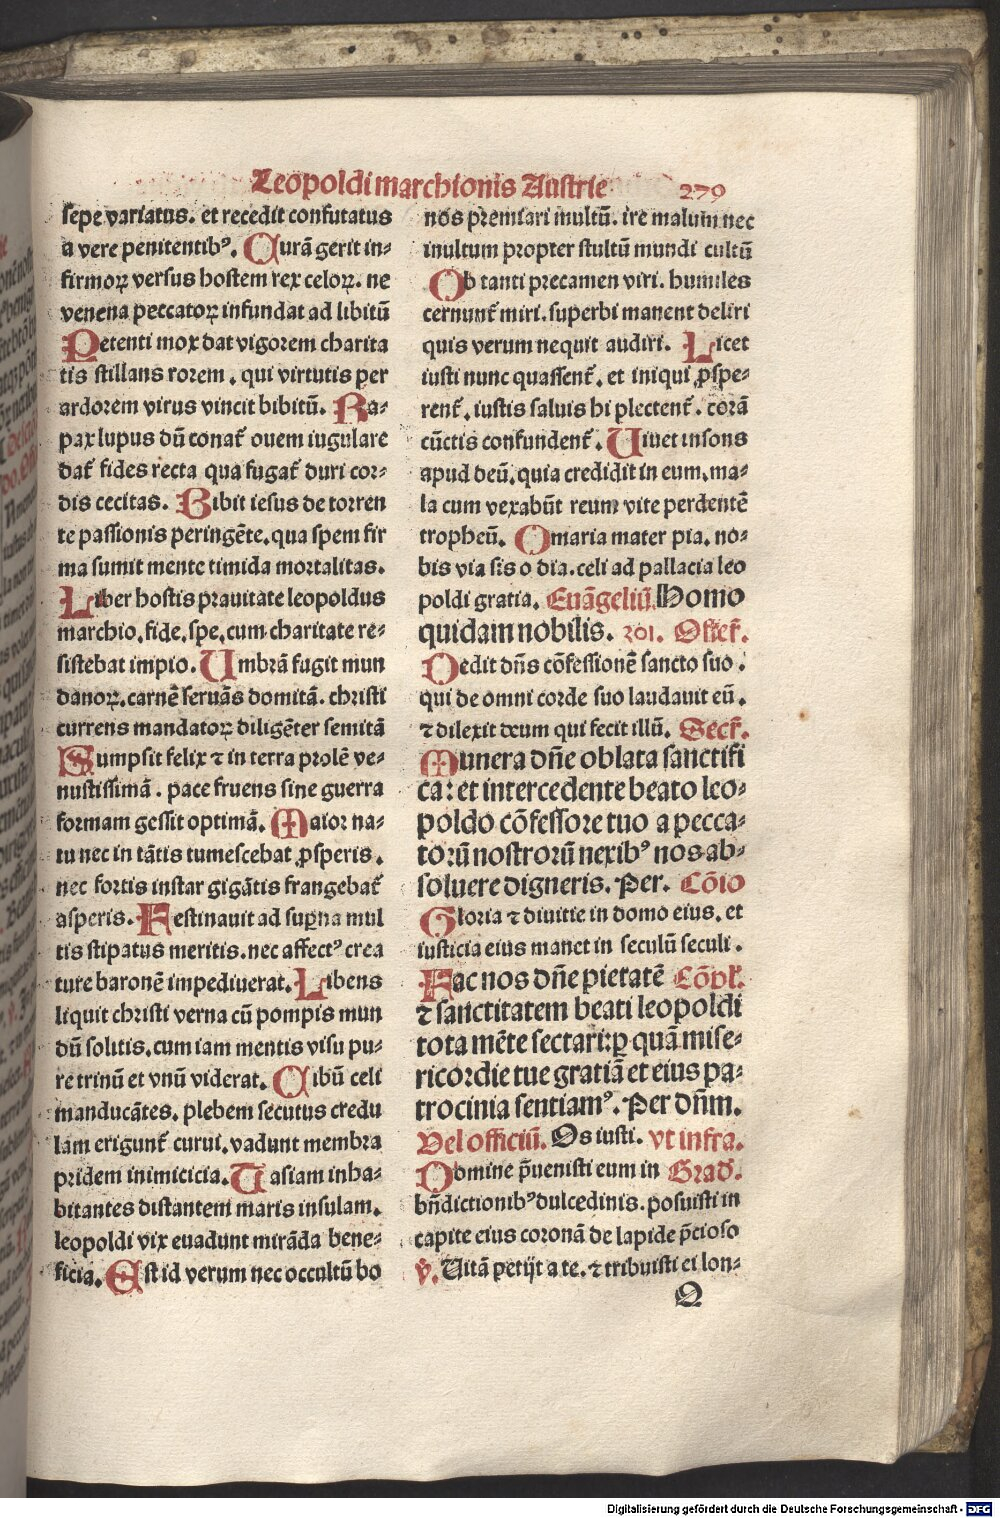 Leopoldi marchionis Austrie 279
sepe variatus. et recedit confutatus
a vere penitentibꝰ. Curā gerit in⸗
firmoꝝ versus hostem rex celoꝝ. ne
venena peccatoꝝ infundat ad libitū
Petenti mox dat vigorem charita
tis stillans rorem. qui virtutis per
ardorem virus vincit bibitū. Ra⸗
pax lupus dū conat᷑ ouem iugulare
dat᷑ fides recta qua fugat᷑ duri cor⸗
dis cecitas. Bibit iesus de torren
te passionis peringēte. qua spem fir
ma sumit mente timida mortalitas.
Liber hostis prauitate leopoldus
marchio. fide, spe, cum charitate re⸗
sistebat impio. Umbrā fugit mun
danoꝝ. carnē seruās domitā. christi
currens mandatoꝝ diligēter semitā
Sumpsit felix ⁊ in terra prolē ve⸗
nustissimā. pace fruens sine guerra
formam gessit optimā. Maior na⸗
tu nec in tātis tumescebat ꝓsperis.
nec fortis instar gigātis frangebat᷑
asperis. Festinauit ad suꝑna mul
tis stipatus meritis. nec affectꝰ crea
ture baronē impediuerat. Libens
liquit christi verna cū pompis mun
dū solitis. cum iam mentis visu pu⸗
re trinū et vnū viderat. Cibū celi
manducātes. plebem secutus credu
lam erigunt᷑ curui. vadunt membra
pridem inimicicia. Uasiam inha⸗
bitantes distantem maris insulam.
leopoldi vix euadunt mirāda bene⸗
ficia. Est id verum nec occultū bo
nos premiari multū. ire malum nec
inultum propter stultū mundi cultū
Ob tanti precamen viri. humiles
cernunt᷑ miri. superbi manent deliri
quis verum nequit audiri. Licet
iusti nunc quassent᷑. et iniqui ꝓspe⸗
rent᷑. iustis saluis hi plectent᷑. corā
cūctis confundent᷑. Uiuet insons
apud deū. quia credidit in eum. ma⸗
la cum vexabūt reum vite perdentē
tropheū. O maria mater pia. no⸗
bis via sis o dia. celi ad pallacia leo
poldi gratia. Euāgeliū. Homo
quidam nobilis. 201. Offert᷑.
Dedit dn̄s cōfessionē sancto suo.
qui de omni corde suo laudauit eū.
⁊ dilexit deum qui fecit illū. Secr̄.
Munera dn̄e oblata sanctifi
ca: et intercedente beato leo⸗
poldo cōfessore tuo a pecca⸗
torū nostrorū nexibꝰ nos ab⸗
soluere digneris. Per. Cōio
Gloria ⁊ diuitie in domo eius. et
iusticia eius manet in seculū seculi.
Fac nos dn̄e pietatē Cōpl̄.
⁊ sanctitatem beati leopoldi
tota mēte sectari: ꝑ quā mise⸗
ricordie tue gratiā et eius pa⸗
trocinia sentiamꝰ. Per dn̄m.
Vel officiū. Os iusti. vt infra.
Domine p̄uenisti eum in Grad᷑.
bn̄dictionibꝰ dulcedinis. posuisti in
capite eius coronā de lapide p̄cioso
℣. Uitā petijt a te. ⁊ tribuisti ei lon⸗
Q
Digitalisierung gefördert durch die Deutsche Forschungsgemeinschaft - DFG